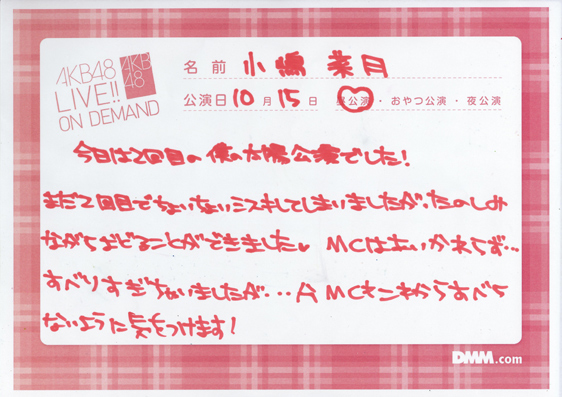 AKB48
LIVE!!
ON DEMAND
AKB
48
名前 小嶋菜月
公演日 10月15日 昼公演・おやつ公演・夜公演
今日は2回目の僕の太陽公演でした!
まだ2回目でちょいちょいミスをしてしまいましたが、たのしみ
ながらおどることができました♥ MCはあいかわらず...
すべりすぎちゃいましたが...今MCもこれからすべら
ないように気をつけます!
DMM.com